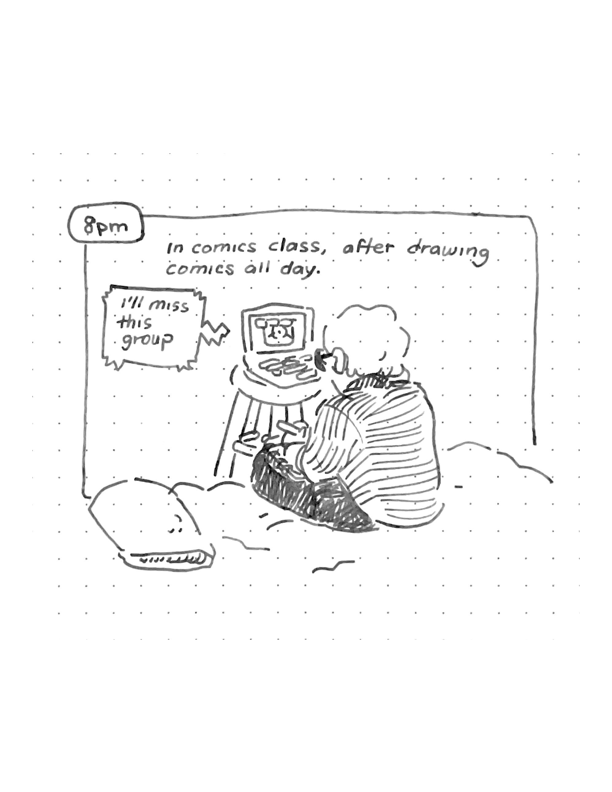 8pm
In comics class, after drawing
comics all day.
I'll miss
this
group